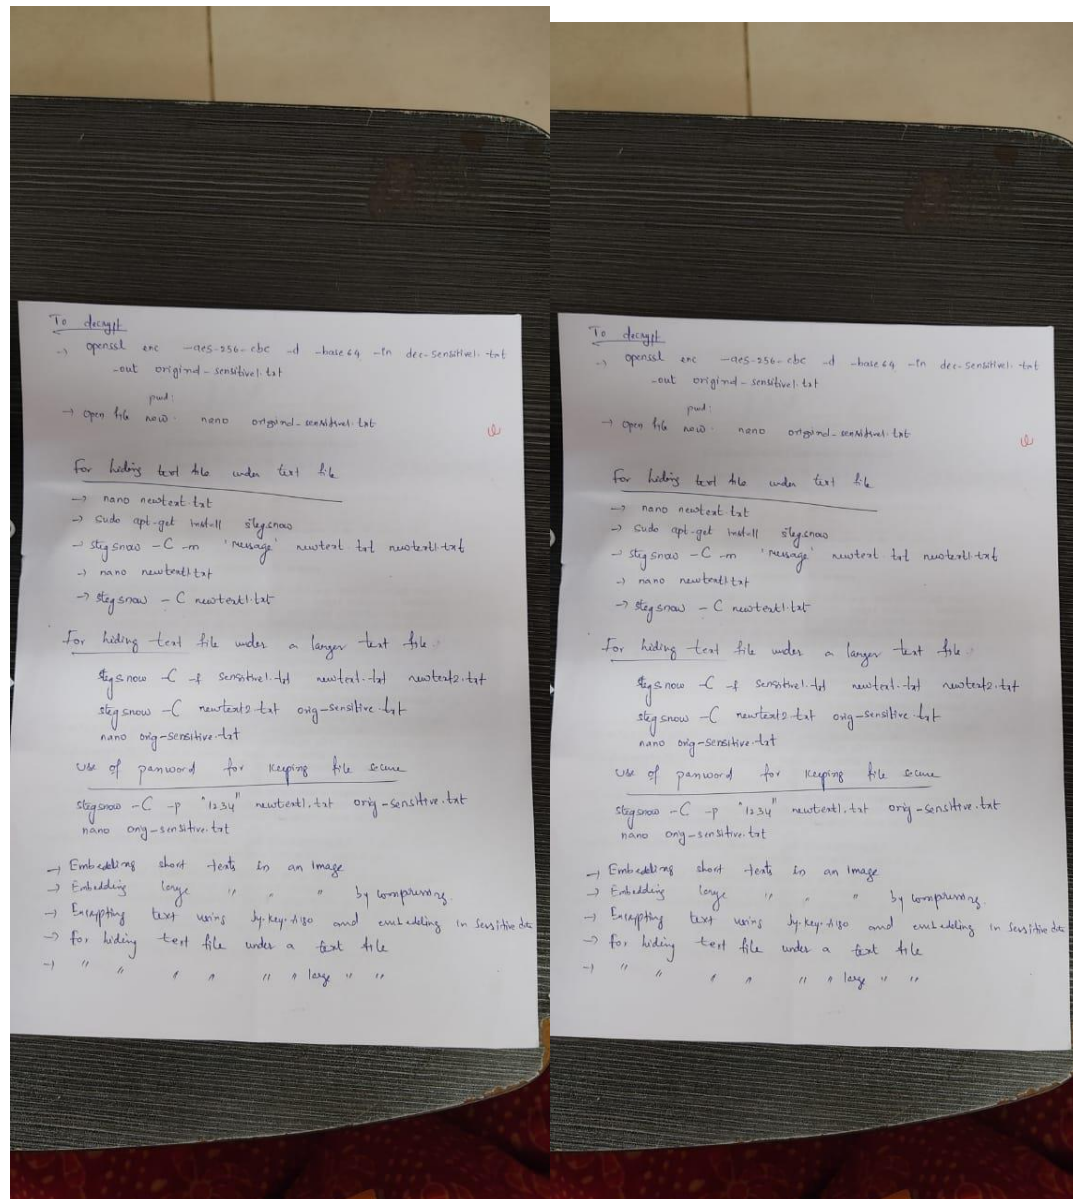 To decrypt
→ openssl enc -aes-256-cbc -d -base64 -in dec-sensitive1.txt
-out original-sensitive1.txt
pwd:
→ open file now. nano original-sensitive1.txt
For hiding text file under text file
→ nano newtext.txt
→ sudo apt-get install stegsnow
→ stegsnow -C -m 'message' newtext.txt newtext1.txt
→ nano newtext1.txt
→ stegsnow -C newtext1.txt
For hiding text file under a larger text file.
stegsnow -C -f sensitive1.txt newtext.txt newtext2.txt
stegsnow -C newtext2.txt orig-sensitive.txt
nano orig-sensitive.txt
use of password for keeping file secure
stegsnow -C -p "1234" newtext1.txt orig-sensitive.txt
nano orig-sensitive.txt
→ Embedding short texts in an image
→ Embedding large " " " by compressing.
→ Encrypting text using sy.key.algo and embedding in sensitive data
→ for hiding text file under a text file
→ " " " " " " large " "
To decrypt
→ openssl enc -aes-256-cbc -d -base64 -in dec-sensitive1.txt
-out original-sensitive1.txt
pwd:
→ open file now. nano original-sensitive1.txt
For hiding text file under text file
→ nano newtext.txt
→ sudo apt-get install stegsnow
→ stegsnow -C -m 'message' newtext.txt newtext1.txt
→ nano newtext1.txt
→ stegsnow -C newtext1.txt
For hiding text file under a larger text file.
stegsnow -C -f sensitive1.txt newtext.txt newtext2.txt
stegsnow -C newtext2.txt orig-sensitive.txt
nano orig-sensitive.txt
use of password for keeping file secure
stegsnow -C -p "1234" newtext1.txt orig-sensitive.txt
nano orig-sensitive.txt
→ Embedding short texts in an image
→ Embedding large " " " by compressing.
→ Encrypting text using sy.key.algo and embedding in sensitive data
→ for hiding text file under a text file
→ " " " " " " large " "